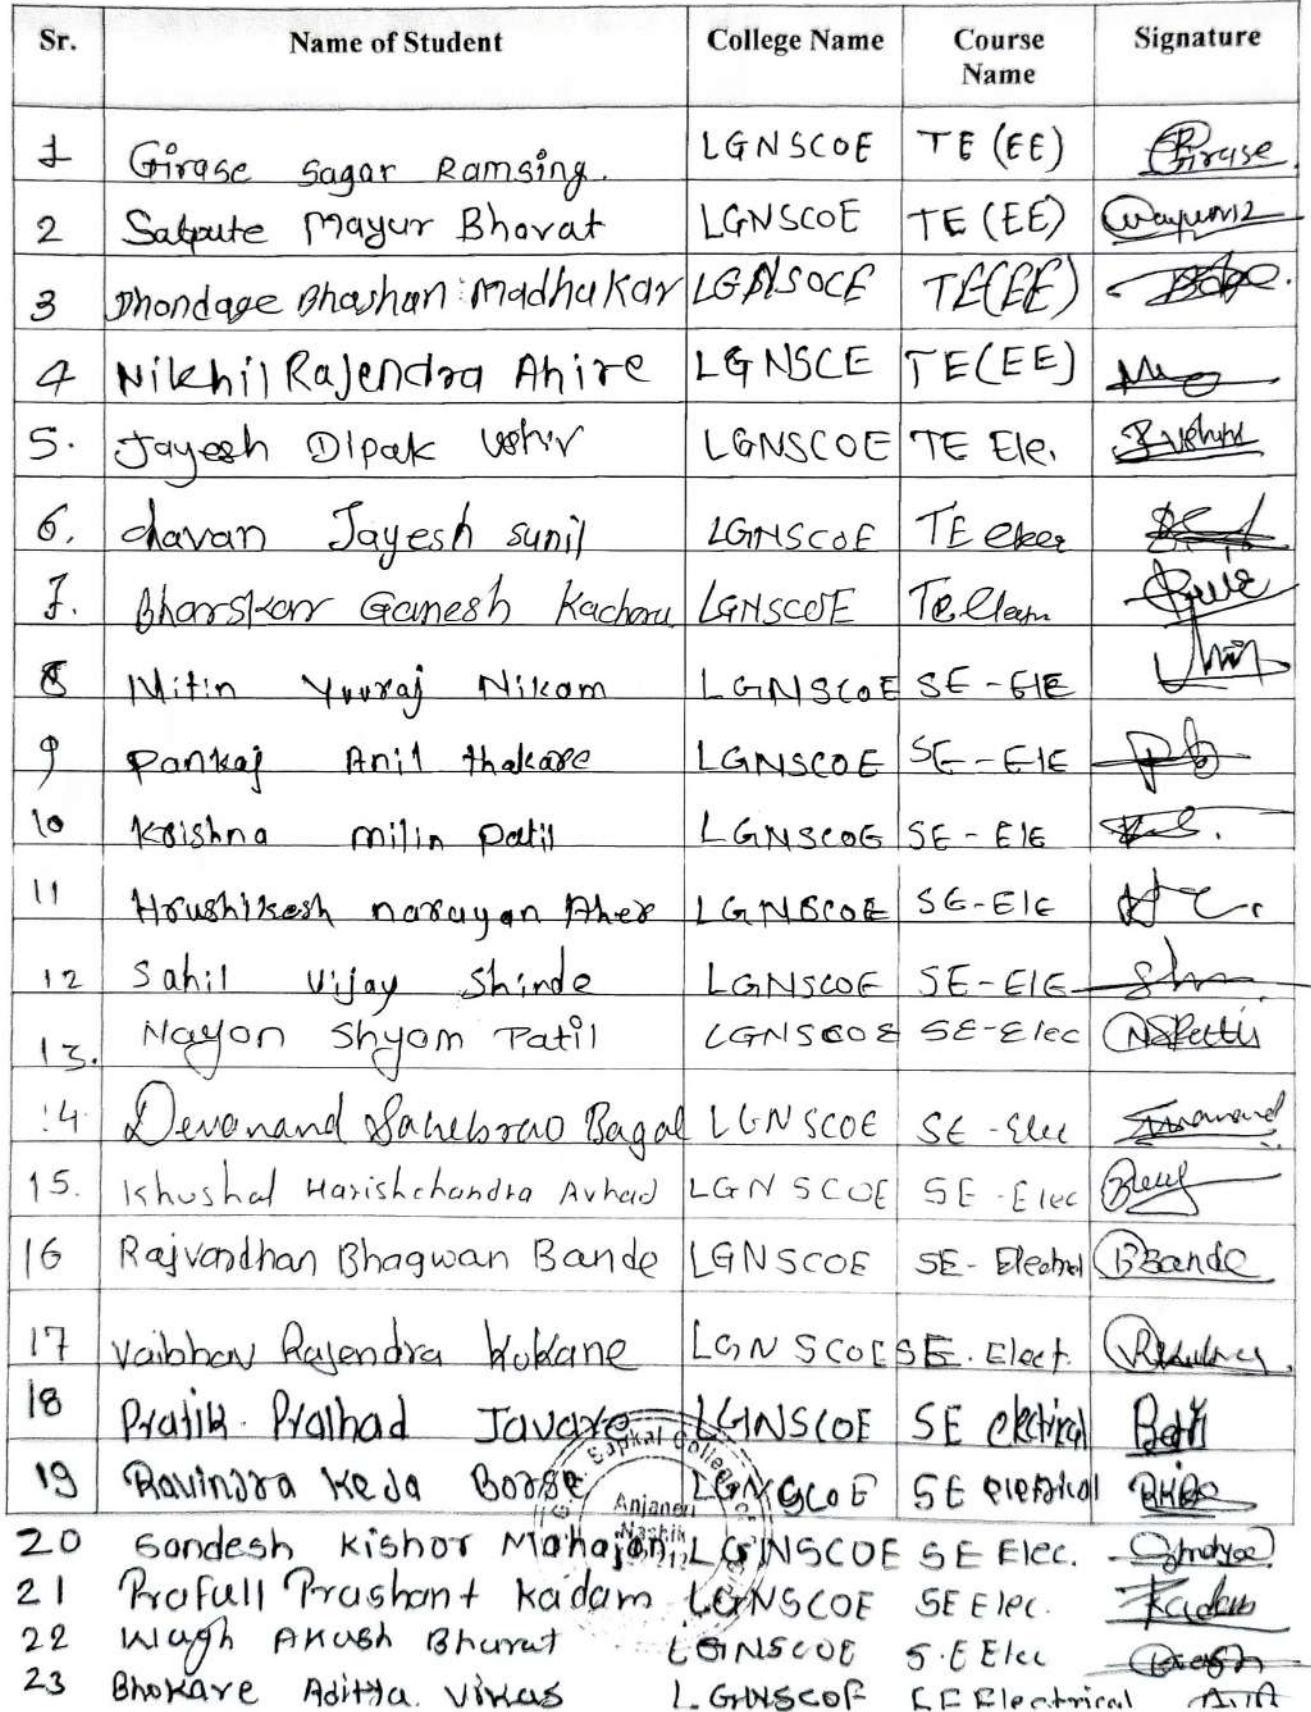 Sr. Name of Student College Name Course Name Signature
1 Girase Sagar Ramsing. LGNSCOE TE (EE) Girase
2 Satpute Mayur Bharat LGNSCOE TE (EE)
3 Dhondage Bhashan Madhukar LGNSOCE TE(EE)
4 Nikhil Rajendra Ahire LGNSCE TE(EE)
5. Jayesh Dipak LGNSCOE TE Ele.
6. chavan Jayesh sunil LGNSCOE TE
7. Bharskar Ganesh Kacharu LGNSCOE TE.
8 Nitin Yuvraj Nikam LGNSCOE SE-ElE
9 Pankaj Anil thakare LGNSCOE SE-ElE
10 Krishna milin patil LGNSCOE SE-ElE
11 Hrushikesh narayan Aher LGNSCOE SE-ElE
12 Sahil Vijay Shinde LGNSCOE SE-ElE
13. Nayan Shyam Patil LGNSCOE SE-Elec NSPatil
14. Devanand Sahebrao Bagal LGNSCOE SE-Elec
15. Khushal Harishchandra Avhad LGNSCOE SE-Elec
16 Rajvardhan Bhagwan Bande LGNSCOE SE- BBande
17 Vaibhav Rajendra Kokane LGNSCOE SE. Elect.
18 Pratik Pralhad Javare LGNSCOE SE electrical
19 Ravindra Keda Borse LGNSCOE SE electrical
Sapkal College
Anjaneri
Nashik
20 Sandesh Kishor Mahajan LGNSCOE SE Elec.
21 Prafull Prashant Kadam LGNSCOE SE Elec. Kadam
22 Wagh Akash Bharat LGNSCOE S.E Elec
23 Bhokare Aditya Vikas LGNSCOE SE Electrical